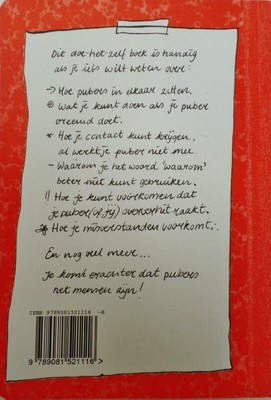 Dit doe-het-zelf boek is handig
als je iets wilt weten over:
→ Hoe pubers in elkaar zitten.
⊙ Wat je kunt doen als je puber
vreemd doet.
* Hoe je contact kunt krijgen,
al werkt je puber niet mee.
– Waarom je het woord 'waarom'
beter niet kunt gebruiken.
!! Hoe je kunt voorkomen dat
je puber (of jij) oververhit raakt.
* Hoe je misverstanden voorkomt.
En nog veel meer...
Je komt erachter dat pubers
net mensen zijn!
ISBN 9789081521116 -8
9 789081 521116 >